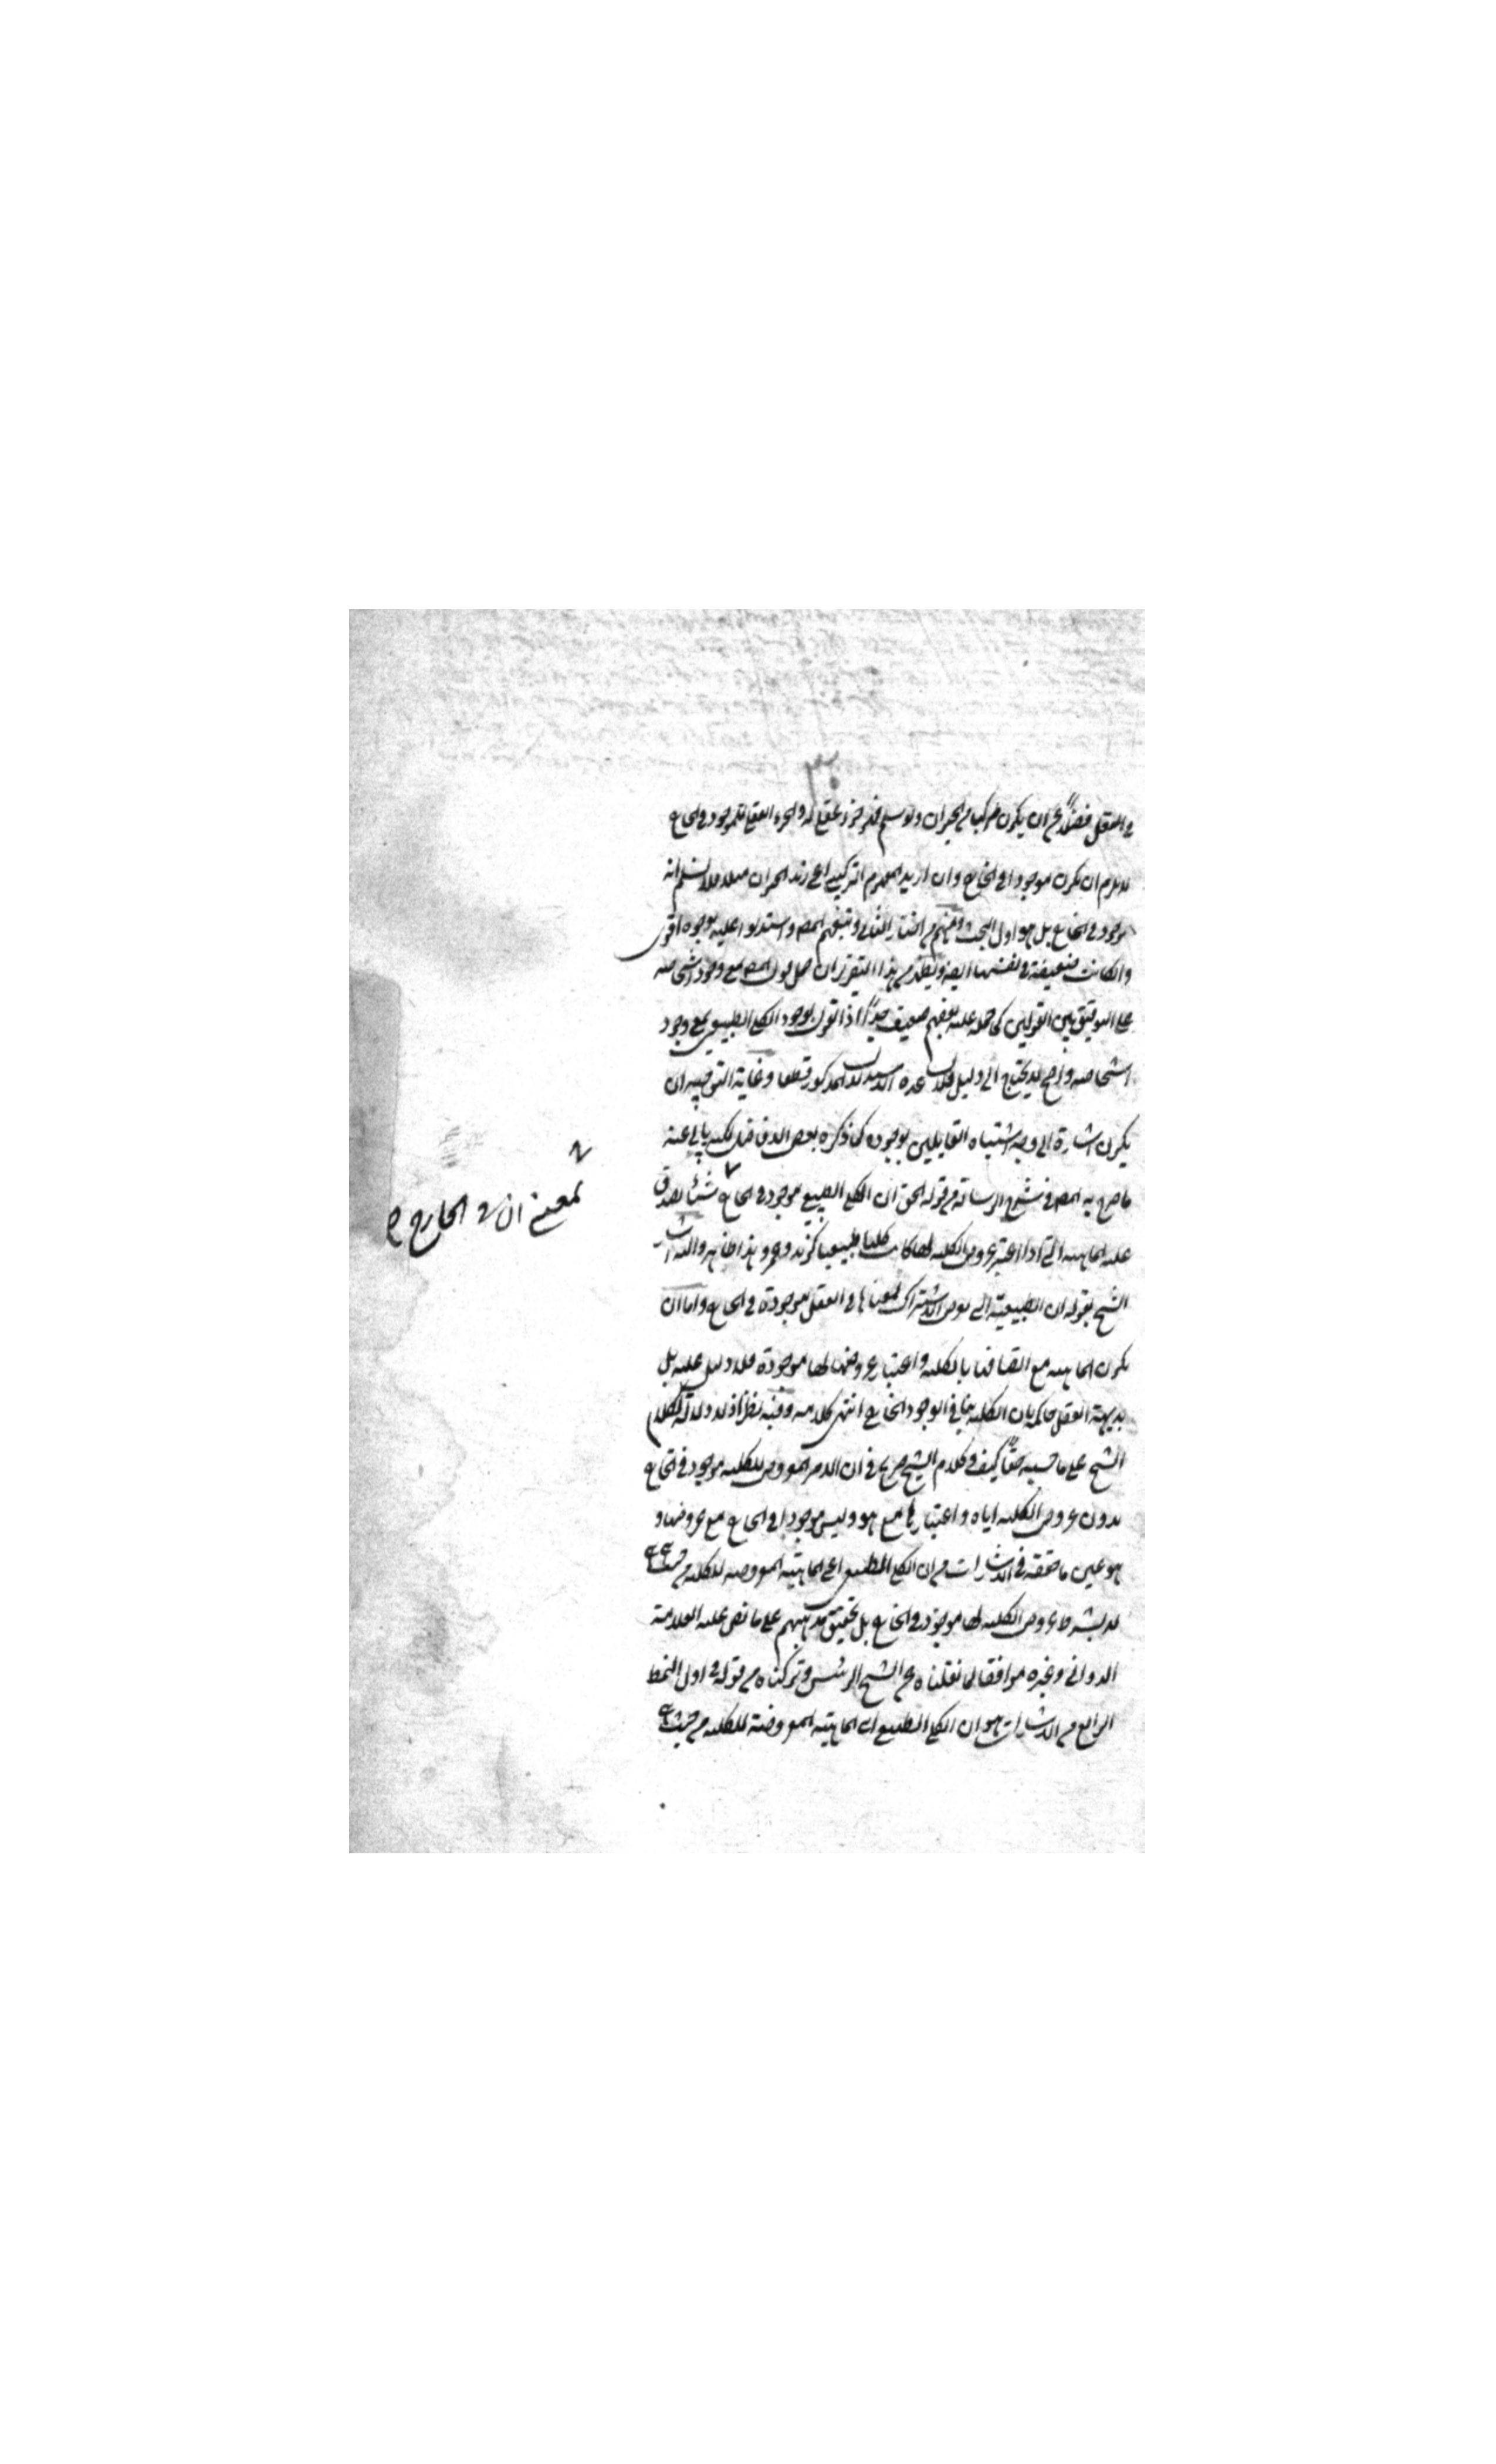 في العقل فضلا عن ان يكون مركبا من الحيوان ولو سلم فهو جزء عقلي له والجزء العقلي للموجود في الخارج
لا يلزم ان يكون موجودا في الخارج وان اريد المفهوم التركيبي اعني زيد الحيوان مثلا فلا نسلم انه
موجود في الخارج بل هو اول البحث ومنهم من اختار الثاني وتبعهم المصـ واستدلوا عليه بوجوه اقوى
وان كانت ضعيفة في نفسها ايضا ويظهر من هذا التقرير ان حمل قول المصـ مع وجود اشخاصه
على التوفيق بين القولين كما حمله عليه بعضهم ضعيف جدا اذ القول بوجود الكلي الطبيعي بمعنى وجود
اشخاصه واضح لا يحتاج الى دليل فلا المذكور قطعا وغاية التوجيه ان
يكون اشارة الى وجه اشتباه القايلين بوجوده كما ذكره بعض الافاضل لكنه يابى عنه
ما صرح به المصـ في شرح الرسالة من قوله الحق ان الكلي الطبيعي موجود في الخارج شيئا يصدق
بمعنى ان في الخارج
عليه الماهية التي اذا اعتبر عروض الكلية لها كانت كليا طبيعيا كزيد وعمرو وهذا ظاهر واليه اشار
الشيخ بقوله ان الطبيعة التي يعرض الاشتراك لمعناها في العقل موجودة في الخارج واما ان
يكون الماهية مع اتصافها بالكلية واعتبار عروضها لها موجودة فلا دليل عليه بل
بديهة العقل حاكمة بان الكلية تنافي الوجود الخارجي انتهى كلامه وفيه نظر اذ لا دلالة لكلام
الشيخ على ما حسبه حقا كيف وكلام الشيخ صريح في ان الامر المعروض للكلية موجود في الخارج
بدون عروض الكلية اياه واعتبارها مع هو وليس موجودا في الخارج مع عروضها و
هو عين ما حققه في الاشارات من ان الكلي الطبيعي اعني الماهية المعروضة للكلية من حيث هي هي
لا بشرط عروض الكلية لها موجود في الخارج بل تحقيق مذهبهم على ما نص عليه العلامة
الدواني وغيره موافقا لما نقلناه عن الشيخ الرئيس وتركناه من قوله في اول النمط
الرابع من الاشارات هو ان الكلي الطبيعي اي الماهية المعروضة للكلية من حيث هي